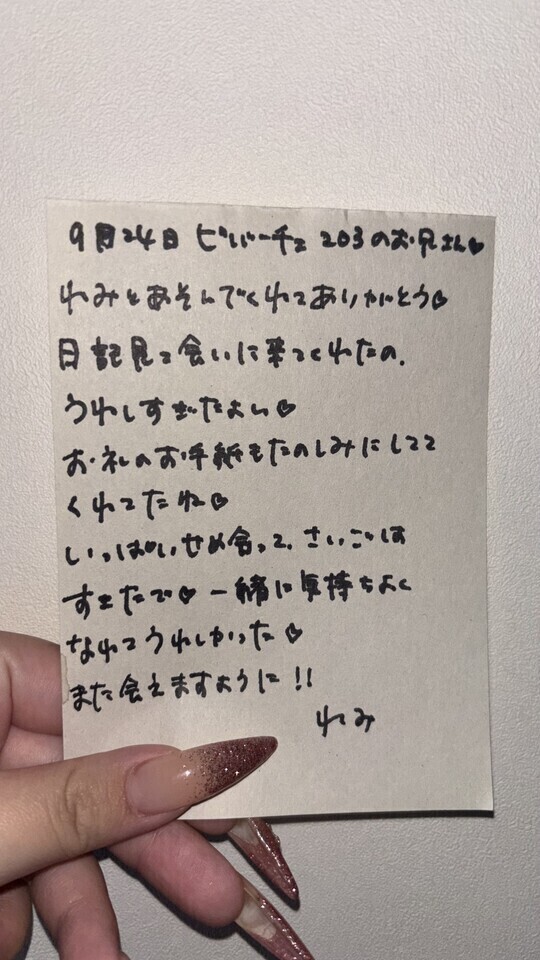 9月24日 ビバーチェ 203のお兄さん♡
れみとあそんでくれてありがとう♡
日記見て会いに来てくれたの、
うれしすぎたよい♡
お礼のお手紙もたのしみにしてて
くれてたね♡
いっぱいせめ合って、さいごは
すきたで♡ 一緒に気持ちよく
なれてうれしかった♡
また会えますように!!
れみ